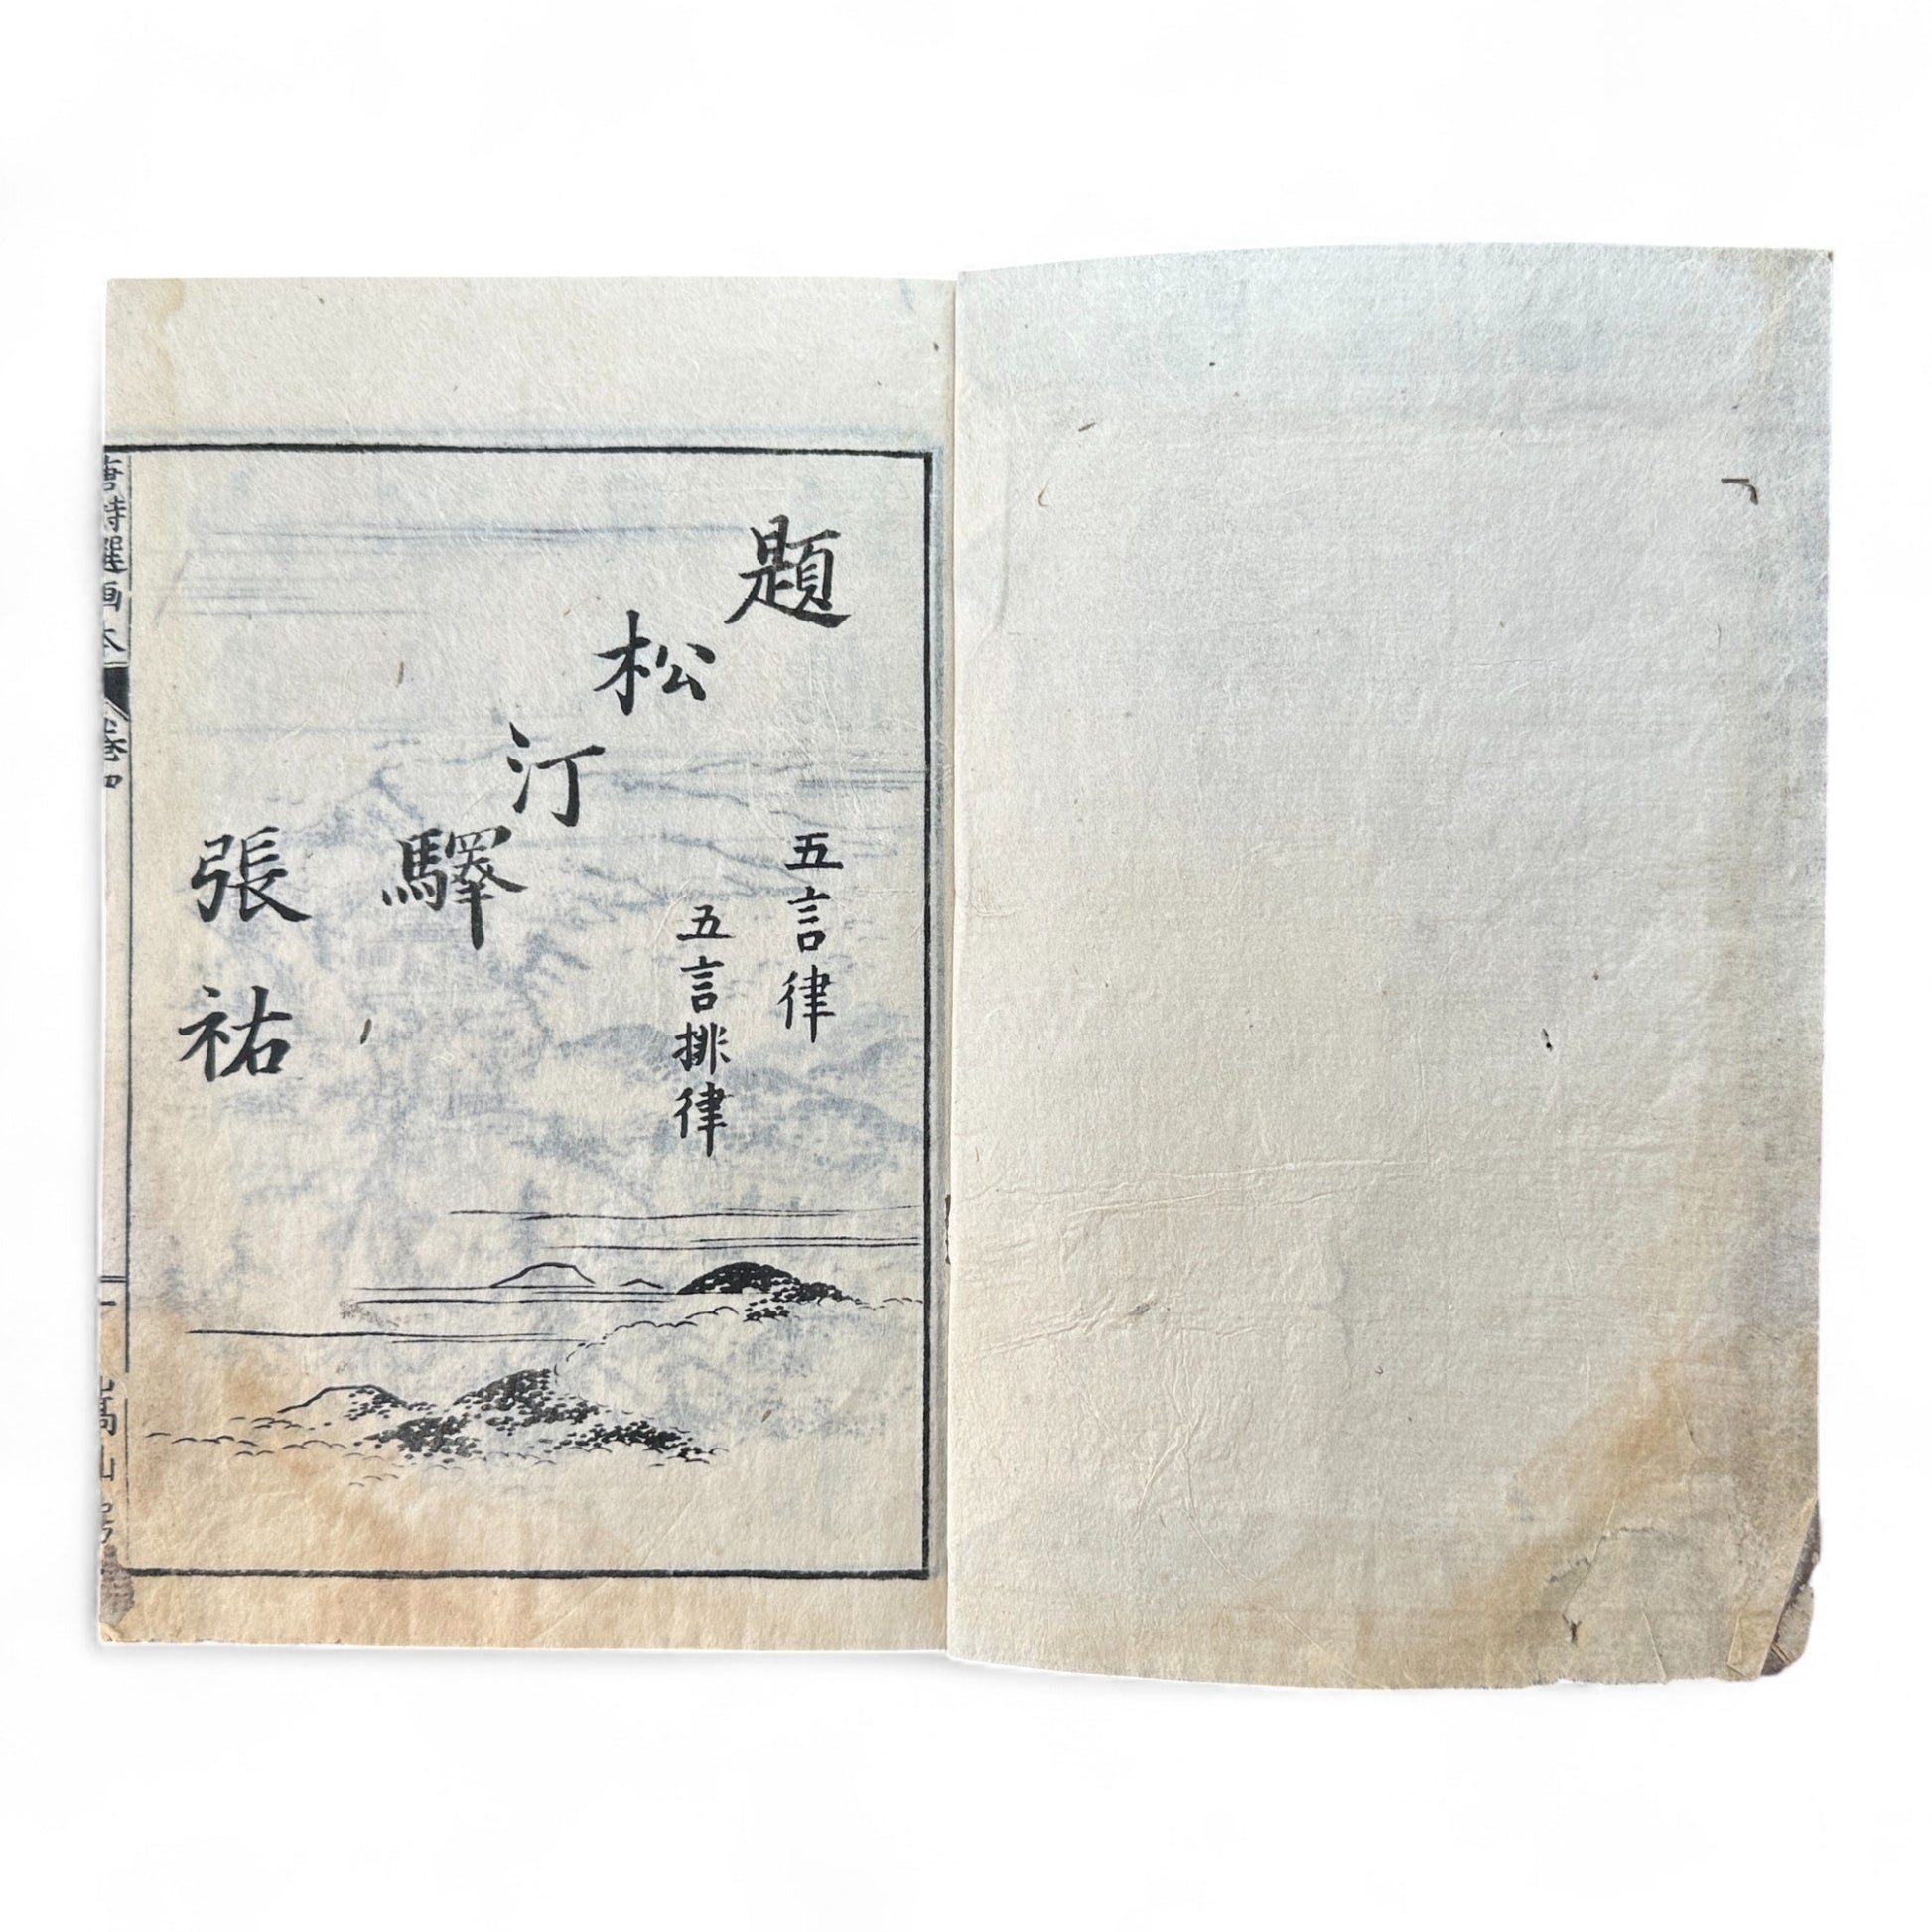 題松汀驛
五言律
五言排律
張祐
唐詩選画本
卷四
一
嵩山房